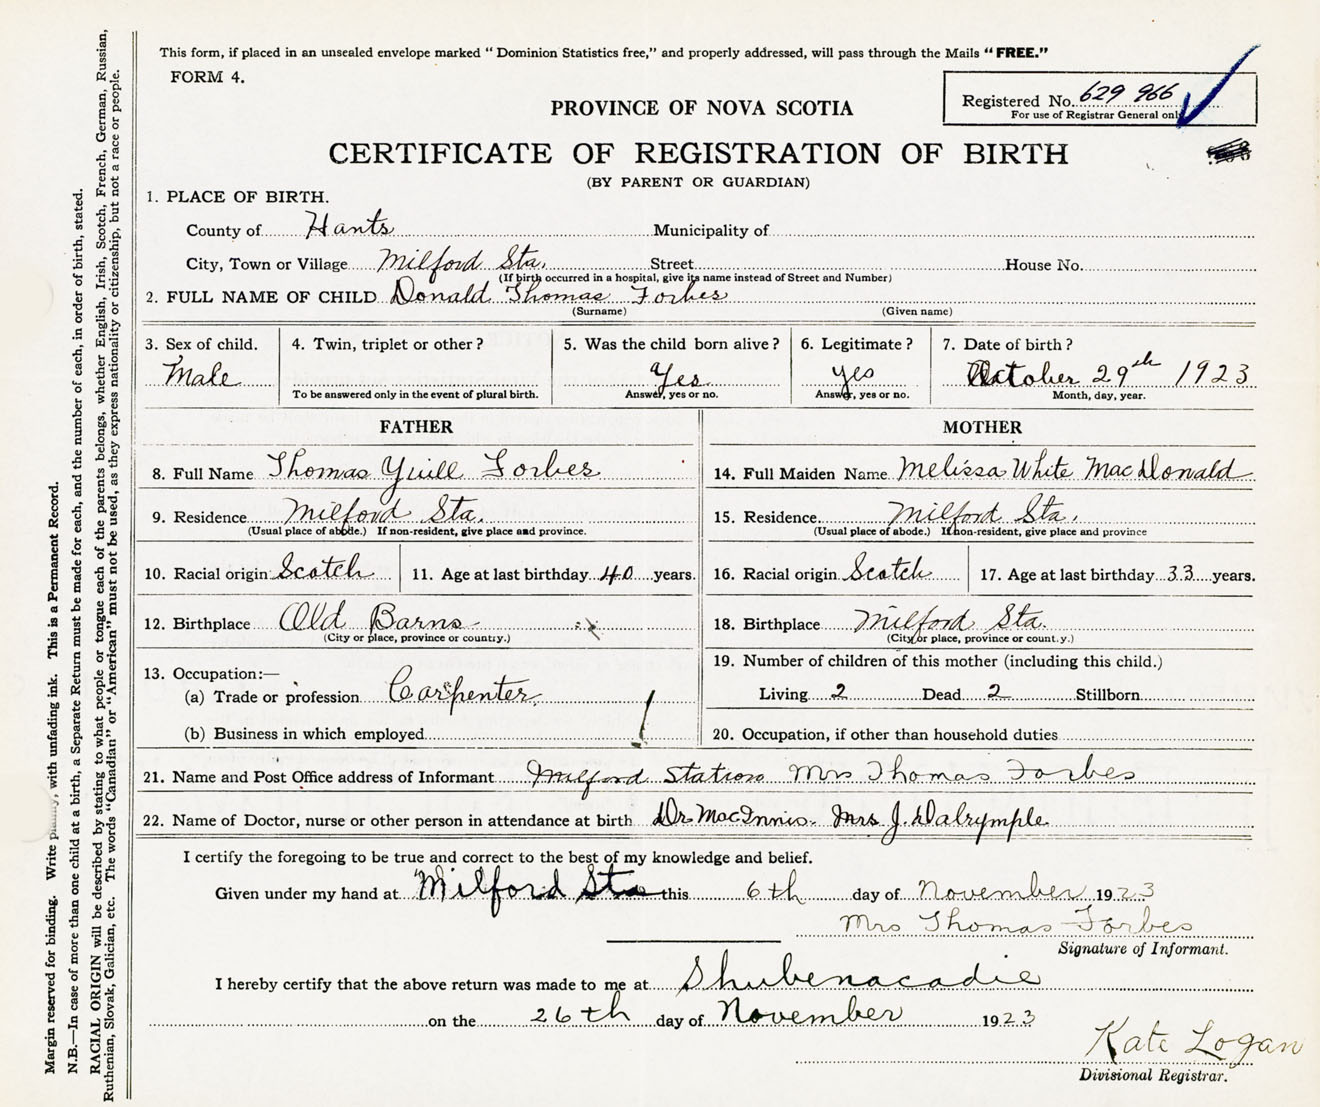 This form, if placed in an unsealed envelope marked "Dominion Statistics free," and properly addressed, will pass through the Mails "FREE."
FORM 4.
Registered No. 629 966
For use of Registrar General only
PROVINCE OF NOVA SCOTIA
CERTIFICATE OF REGISTRATION OF BIRTH
(BY PARENT OR GUARDIAN)
1. PLACE OF BIRTH.
County of Hants Municipality of
City, Town or Village Milford Sta. Street House No.
(If birth occurred in a hospital, give its name instead of Street and Number)
2. FULL NAME OF CHILD Donald Thomas Forbes
(Surname) (Given name)
3. Sex of child. 4. Twin, triplet or other? 5. Was the child born alive? 6. Legitimate? 7. Date of birth?
Male Yes yes October 29th 1923
To be answered only in the event of plural birth. Answer, yes or no. Answer, yes or no. Month, day, year.
FATHER MOTHER
8. Full Name Thomas Yuill Forbes 14. Full Maiden Name Melissa White MacDonald
9. Residence Milford Sta. 15. Residence Milford Sta.
(Usual place of abode.) If non-resident, give place and province. (Usual place of abode.) If non-resident, give place and province
10. Racial origin Scotch 11. Age at last birthday 40 years. 16. Racial origin Scotch 17. Age at last birthday 33 years.
12. Birthplace Old Barns 18. Birthplace Milford Sta.
(City or place, province or country.) (City or place, province or count.y.)
13. Occupation:— 19. Number of children of this mother (including this child.)
(a) Trade or profession Carpenter. Living 2 Dead 2 Stillborn
(b) Business in which employed 20. Occupation, if other than household duties
21. Name and Post Office address of Informant Milford Station Mrs Thomas Forbes
22. Name of Doctor, nurse or other person in attendance at birth Dr MacInnis. Mrs J. Dalrymple
I certify the foregoing to be true and correct to the best of my knowledge and belief.
Given under my hand at Milford Sta this 6th day of November 1923
Mrs Thomas Forbes
Signature of Informant.
I hereby certify that the above return was made to me at Shubenacadie
on the 26th day of November 1923
Kate Logan
Divisional Registrar.
Margin reserved for binding. Write plainly, with unfading ink. This is a Permanent Record.
N.B.—In case of more than one child at a birth, a Separate Return must be made for each, and the number of each, in order of birth, stated.
RACIAL ORIGIN will be described by stating to what people or tongue each of the parents belongs, whether English, Irish, Scotch, French, German, Russian,
Ruthenian, Slovak, Galician, etc. The words "Canadian" or "American" must not be used, as they express nationality or citizenship, but not a race or people.